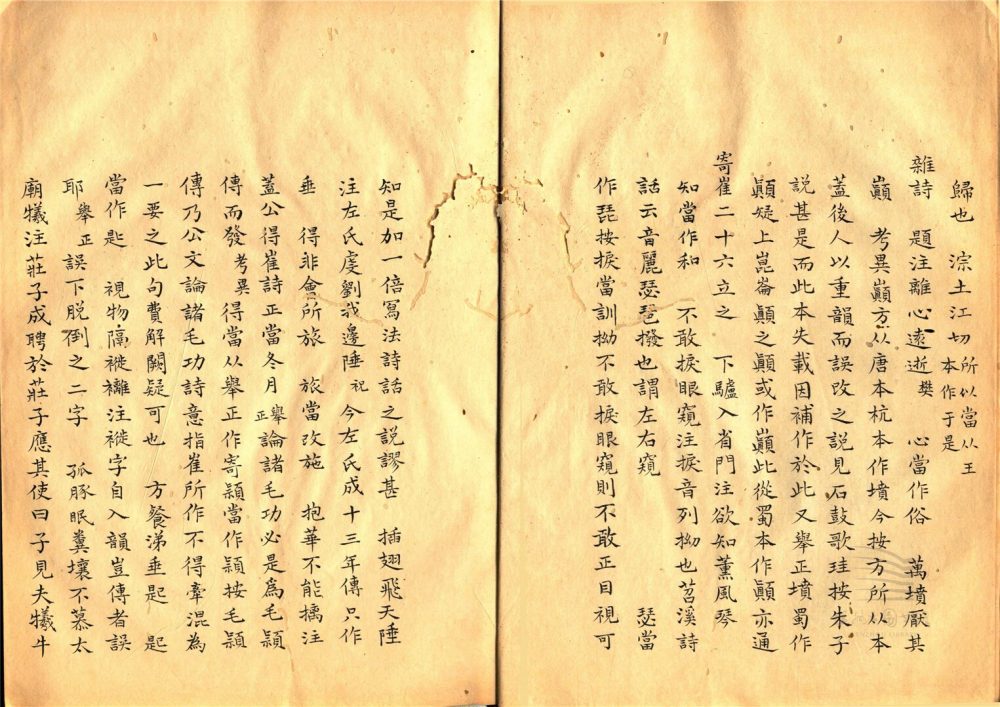 歸也 淙土江切所以當从王本作于是
雜詩 題注離心遠逝樊 心當作俗 萬墳厭其
巔 考異巔方从唐本杭本作墳今按方所从本
蓋後人以重韻而誤改之說見石鼓歌珪按朱子
說甚是而此本失載因補作於此又舉正墳蜀作
顛疑上崑崙顛之顛或作巔此從蜀本作顛亦通
寄崔二十六立之 下驢入省門注欲知薰風琴
知當作和 不敢捩眼窺注捩音列拗也苕溪詩
話云音麗瑟琶撥也謂左右窺 瑟當
作琵按捩當訓拗不敢捩眼窺則不敢正目視可
知是加一倍寫法詩話之說謬甚 插翅飛天陲
注左氏虔劉我邊陲祝 今左氏成十三年傳只作
垂 得非會所旅 旅當改施 抱華不能摛注
蓋公得崔詩正當冬月舉正論諸毛功必是為毛穎
傳而發考異得當从舉正作寄穎當作頴按毛穎
傳乃公文論諸毛功詩意指崔所作不得牽混為
一要之此句費解闕疑可也 方餐涕垂匙 匙
當作匙 視物隔褷襹注褷字自入韻豈傳者誤
耶舉正誤下脫倒之二字 孤豚眠糞壤不慕太
廟犧注莊子成聘於莊子應其使曰子見夫犧牛